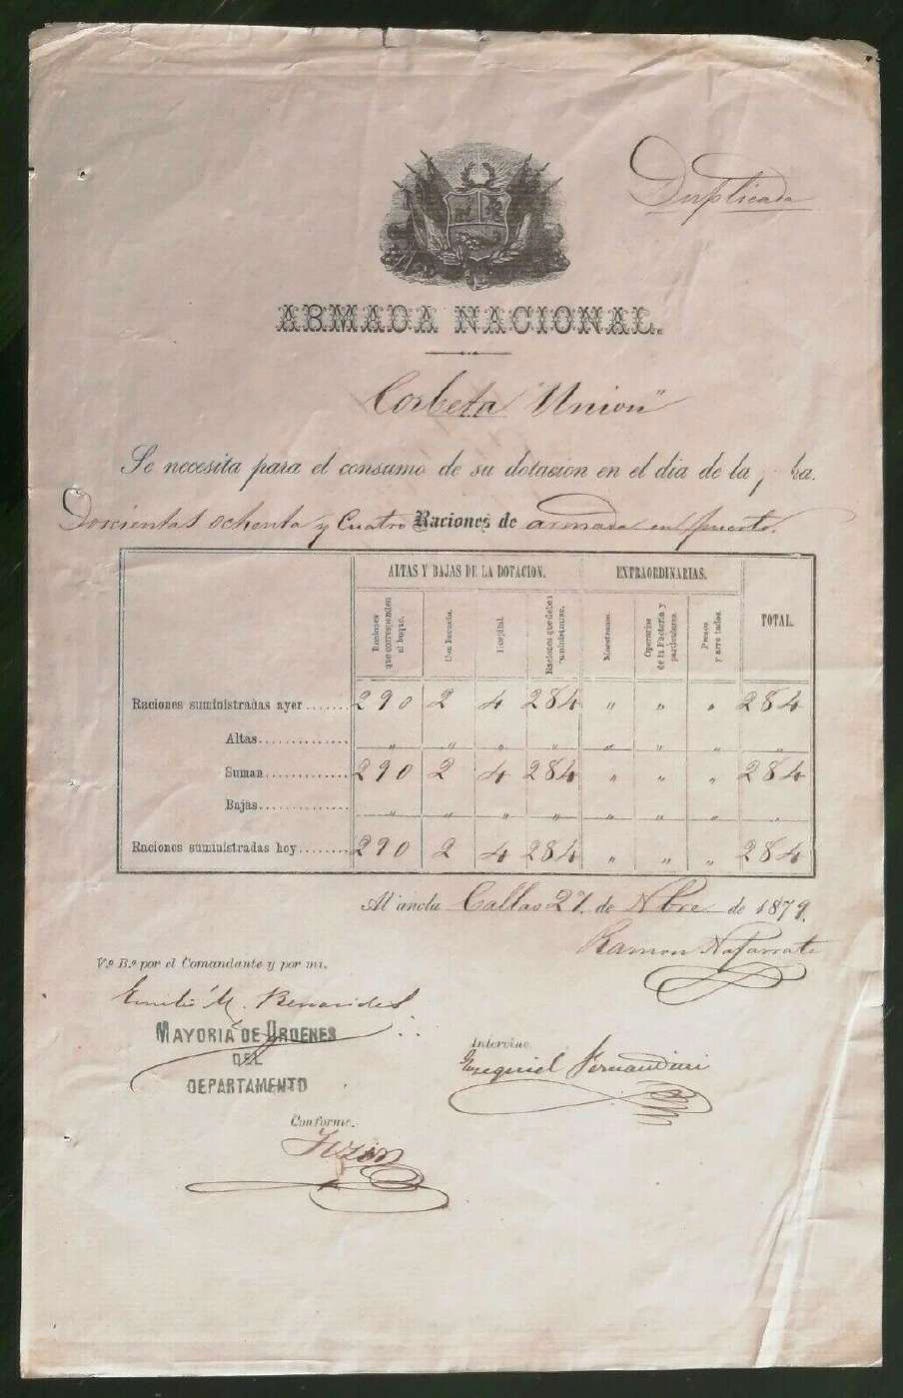 Duplicada
ARMADA NACIONAL.
Corbeta "Union"
Se necesita para el consumo de su dotacion en el dia de la fha.
Doscientas ochenta y Cuatro Raciones de armada en puerto.
ALTAS Y BAJAS DE LA DOTACION. EXTRAORDINARIAS. TOTAL.
Raciones que corresponden al buque. Hospital. Raciones que deben suministrarse. Maestranza. Operarios de la Factoria y particulares. Presos y arrestados.
Raciones suministradas ayer....... 290 2 4 284 " " " 284
Altas.............. " " " " " " " "
Suman............ 290 2 4 284 " " " 284
Bajas.............. " " " " " " " "
Raciones suministradas hoy........ 290 2 4 284 " " " 284
Al ancla Callao 27. de Nbre de 1879.
Ramon
V.º B.º por el Comandante y por mi.
Emilio M. Benavides
MAYORIA DE ORDENES
DEL
DEPARTAMENTO
Intervine
Ezequiel Fernandini
Conforme.